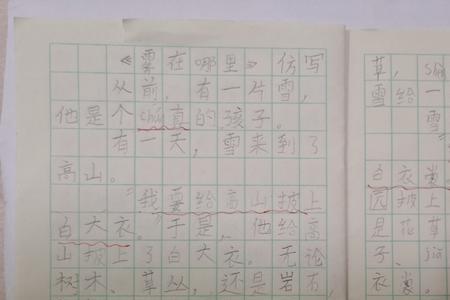 《雾在哪里》仿写
从前，有一片雪，
他是个 真的孩子。
有一天，雪来到了
高山。
“我要给高山披上
白大衣。”于是，他给高
山披上了白大衣。无论
树木、草丛，还是岩石，
草，
雪给一
雪
白衣裳
园披上
是花草
子、jiā
衣裳。